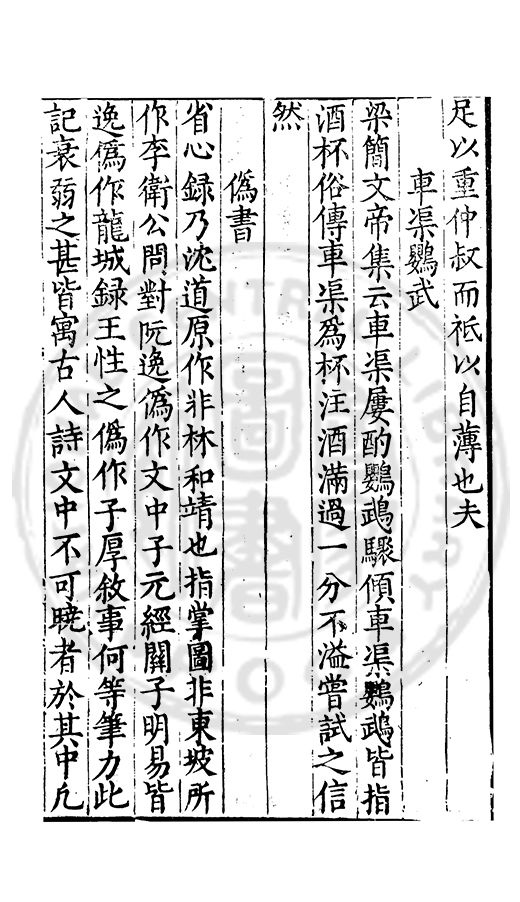 足以重仲叔而祗以自薄也夫
車渠鸚武
梁簡文帝集云車渠屢酌鸚鵡驟傾車渠鸚鵡皆指
酒杯俗傳車渠爲杯注酒滿過一分不溢嘗試之信
然
僞書
省心録乃沈道原作非林和靖也指掌圖非東坡所
作李衛公問對阮逸僞作文中子元經關子明易皆
逸僞作龍城録王性之僞作子厚敘事何等筆力此
記衰弱之甚皆寓古人詩文中不可曉者於其中凡